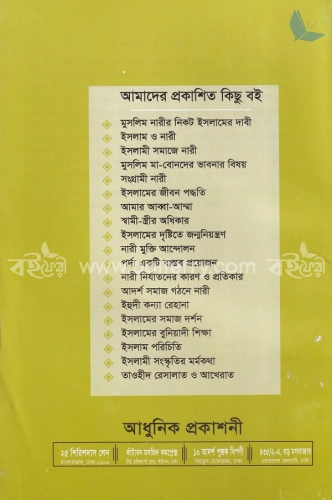 আমাদের প্রকাশিত কিছু বই
মুসলিম নারীর নিকট ইসলামের দাবী
ইসলাম ও নারী
ইসলামী সমাজে নারী
মুসলিম মা-বোনদের ভাবনার বিষয়
সংগ্রামী নারী
ইসলামের জীবন পদ্ধতি
আমার আব্বা-আম্মা
স্বামী-স্ত্রীর অধিকার
ইসলামের দৃষ্টিতে জন্মনিয়ন্ত্রণ
নারী মুক্তি আন্দোলন
পর্দা একটি বাস্তব প্রয়োজন
নারী নির্যাতনের কারণ ও প্রতিকার
আদর্শ সমাজ গঠনে নারী
ইহুদী কন্যা রেহানা
ইসলামের সমাজ দর্শন
ইসলামের বুনিয়াদী শিক্ষা
ইসলাম পরিচিতি
ইসলামী সংস্কৃতির মর্মকথা
তাওহীদ রেসালাত ও আখেরাত
আধুনিক প্রকাশনী
২৫ শিরিশদাস লেন
বাংলাবাজার, ঢাকা-১১০০
কাঁটাবন মসজিদ কমপ্লেক্স
১০ আদর্শ পুস্তক বিপণী
৪৩৫/২-এ, বড় মগবাজার
বইফেরী www. বইফেরী